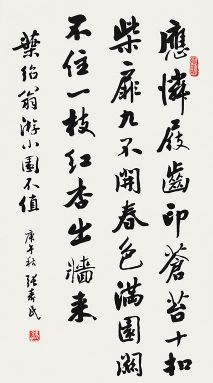 應憐屐齒印蒼苔十扣
柴扉九不開春色滿園關
不住一枝紅杏出墻來
葉紹翁游小園不值
庚午秋